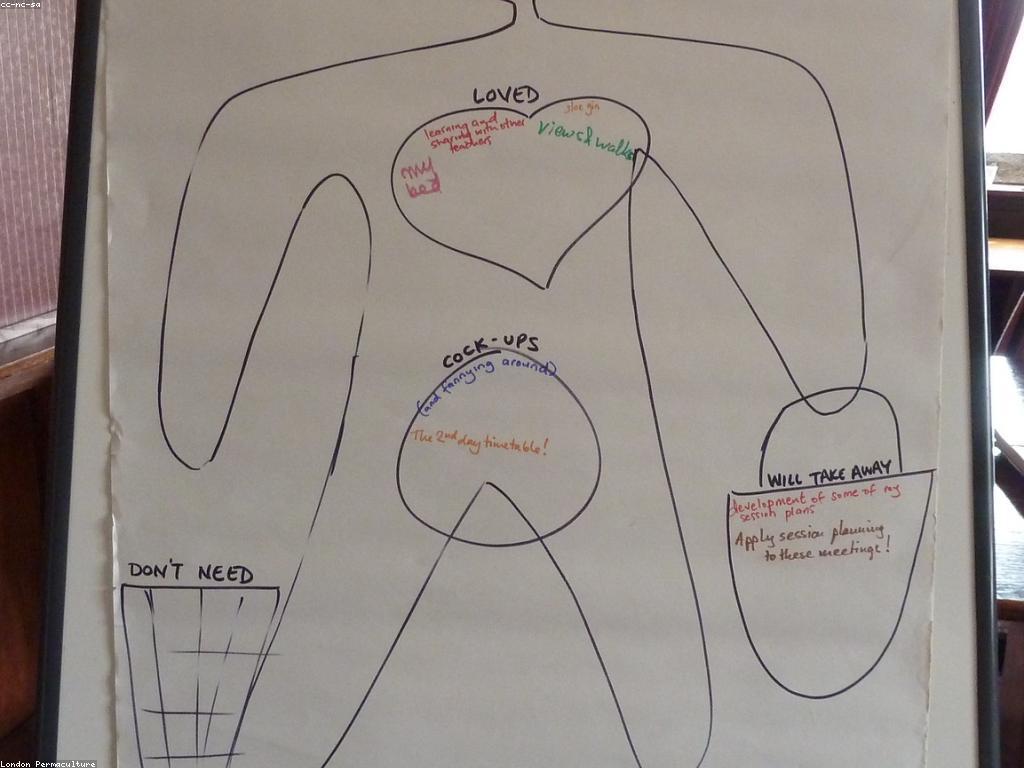 cc-nc-sa
LOVED
learning and
sharing with other
teachers
sloe gin
views & walks
my
bed
COCK-UPS
(and fannying around)
The 2nd day timetable!
WILL TAKE AWAY
development of some of my
session plans
Apply session planning
to these meetings!
DON'T NEED
London Permaculture